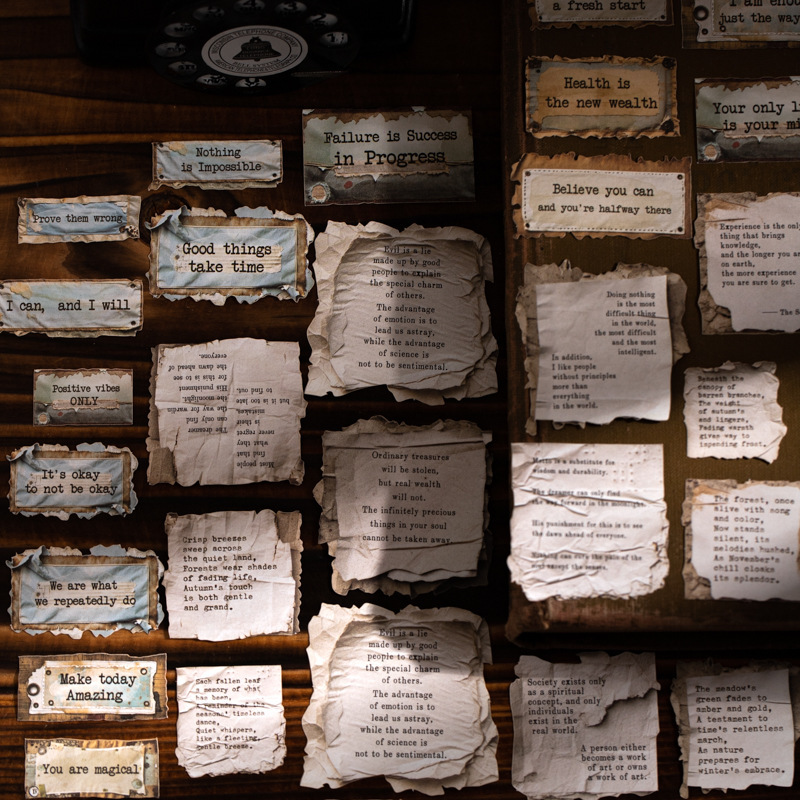 a fresh start
I am enou
just the way
Health is
the new wealth
Your only li
is your mi
Failure is Success
in Progress
Nothing
is Impossible
Believe you can
and you're halfway there
Prove them wrong
Good things
take time
Experience is the only
thing that brings
knowledge,
and the longer you are
on earth,
the more experience
you are sure to get.
I can, and I will
Evil is a lie
made up by good
people to explain
the special charm
of others.
The advantage
of emotion is to
lead us astray,
while the advantage
of science is
not to be sentimental.
Doing nothing
is the most
difficult thing
in the world,
the most difficult
and the most
intelligent.
In addition,
I like people
without principles
more than
everything
in the world.
Positive vibes
ONLY
The dreamer
can only find
the way forward in
the moonlight.
His punishment
for this is to see
the dawn ahead of
everyone.
Most people
find that
what they
never regret
is their
mistakes,
but it is too late
to find out.
Beneath the
canopy of
Barren branches,
The weight
of autumn's
end lingers,
Fading warmth
gives way to
impending frost.
It's okay
to not be okay
Ordinary treasures
will be stolen,
but real wealth
will not.
The infinitely precious
things in your soul
cannot be taken away.
is a substitute for
wisdom and durability.
The dreamer can only find
the way forward in the moonlight.
His punishment for this is to see
the dawn ahead of everyone.
Nothing can cure the pain of the
soul except the senses.
The forest, once
alive with song
and color,
Now stands
silent, its
melodies hushed,
As November's
chill cloaks
its splendor.
Crisp breezes
sweep across
the quiet land,
Forests wear shades
of fading life,
Autumn's touch
is both gentle
and grand.
We are what
we repeatedly do
Make today
Amazing
Each fallen leaf
a memory of what
has been,
A reminder of the
seasons' timeless
dance,
Quiet whispers,
like a fleeting,
gentle breeze.
Evil is a lie
made up by good
people to explain
the special charm
of others.
The advantage
of emotion is to
lead us astray,
while the advantage
of science is
not to be sentimental.
Society exists only
as a spiritual
concept, and only
individuals
exist in the
real world.
A person either
becomes a work
of art or owns
a work of art.
The meadow's
green fades to
amber and gold,
A testament to
time's relentless
march,
As nature
prepares for
winter's embrace.
You are magical